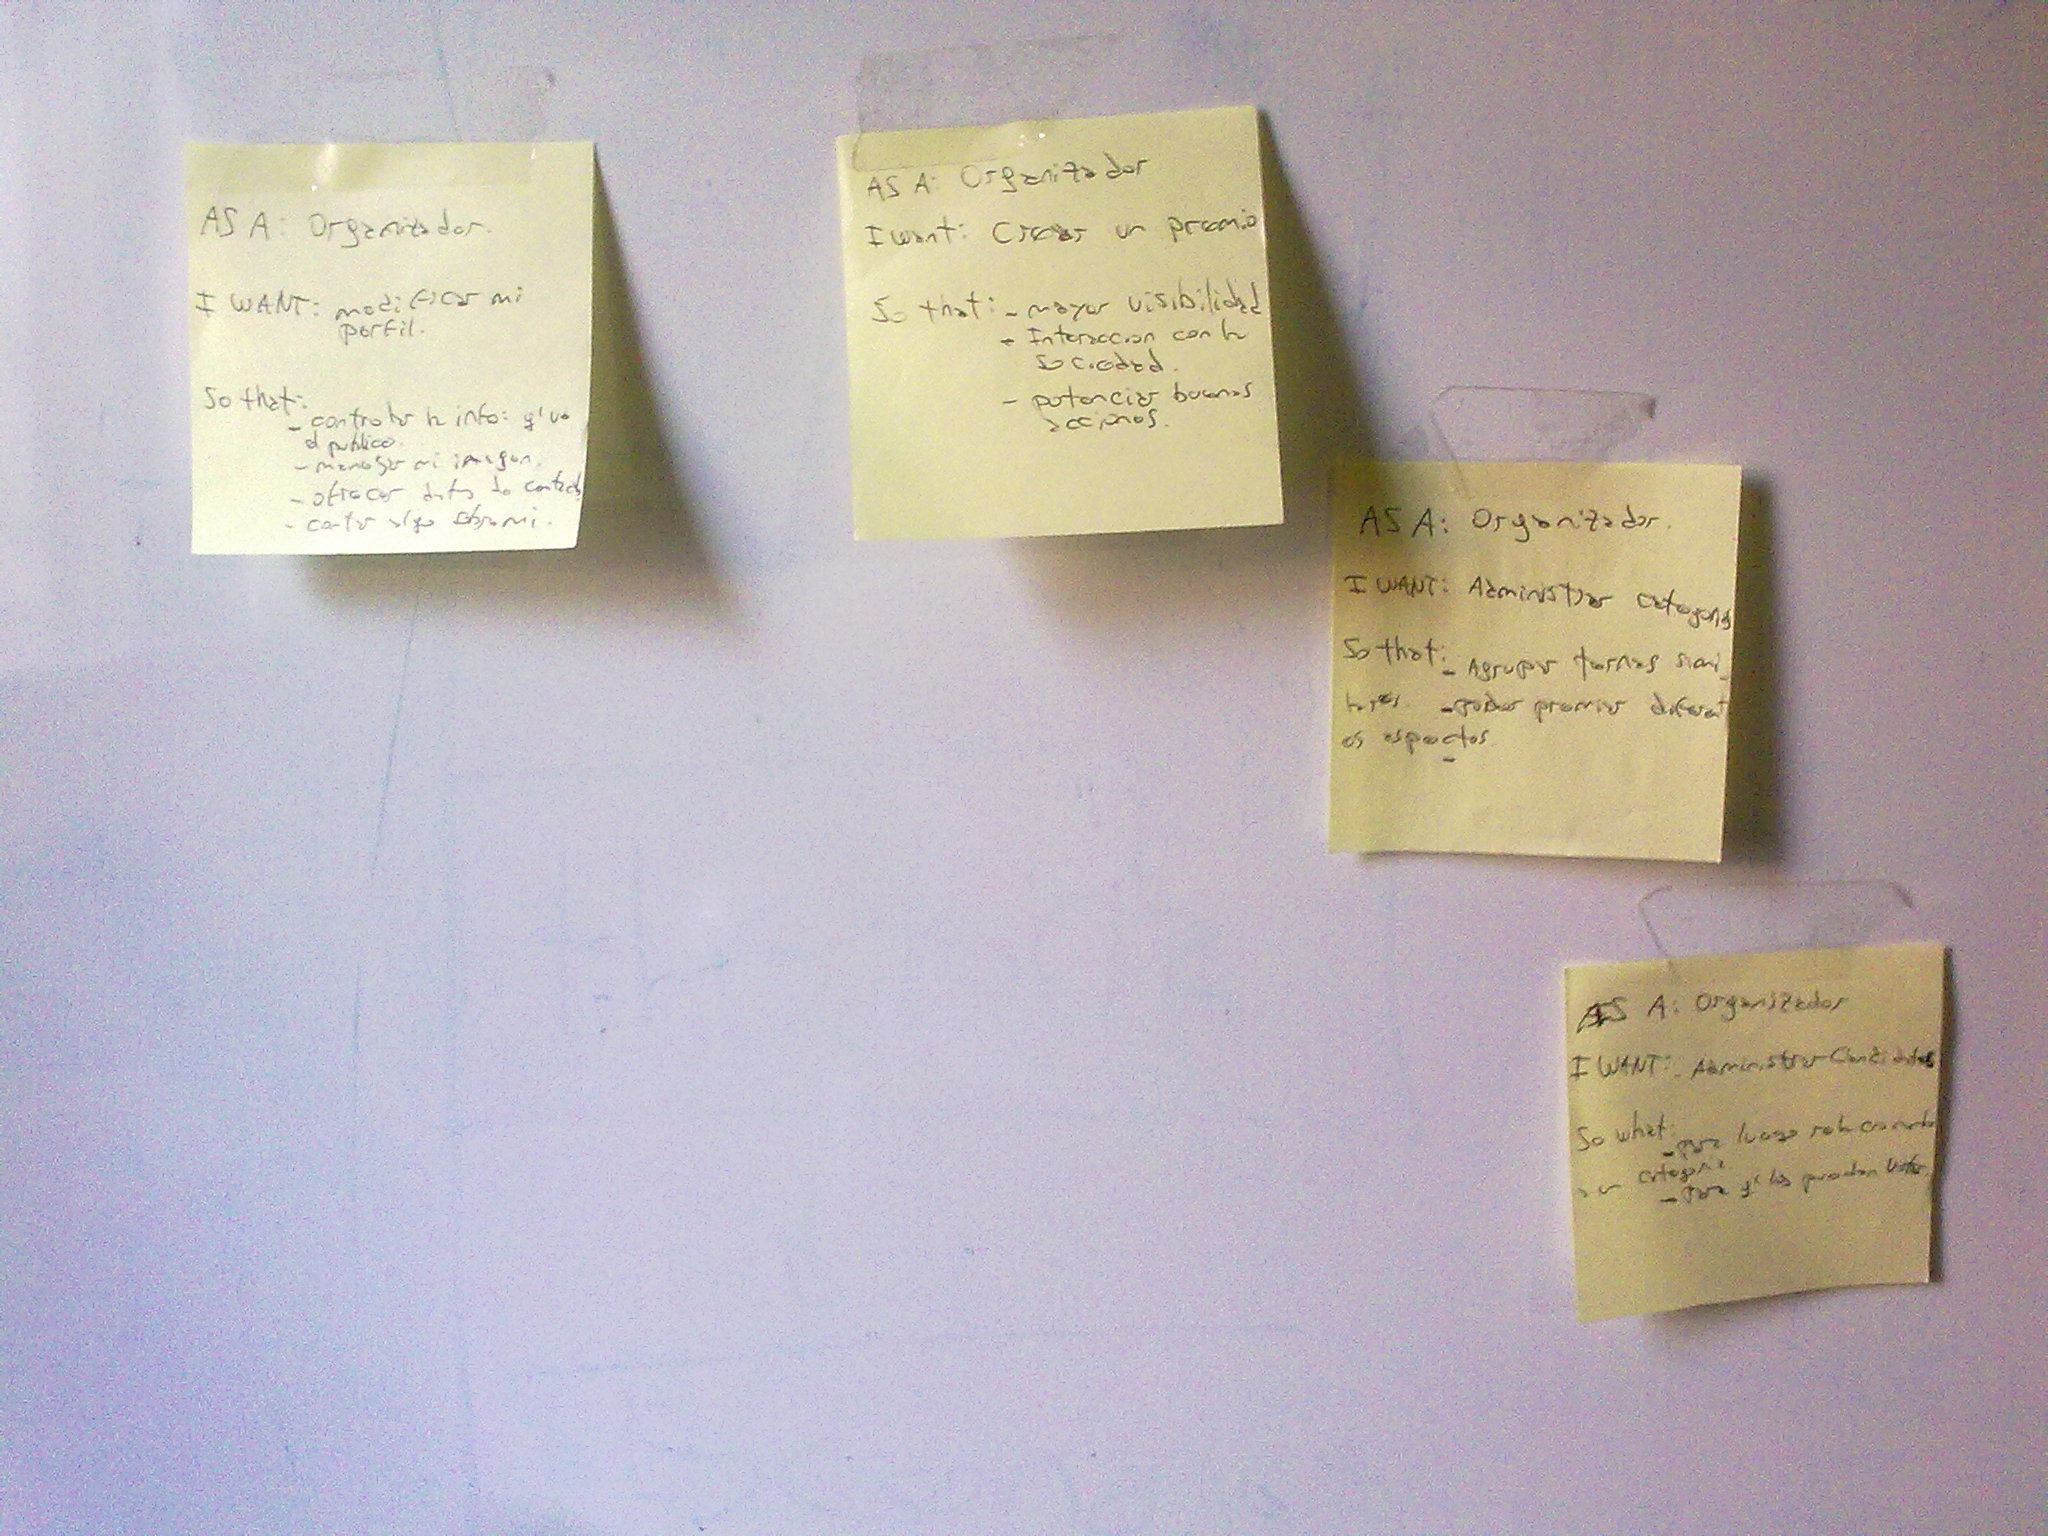 AS A: Organizador.
I WANT: modificar mi
perfil.
So that:
- controlar la info: q' ve
el publico.
- manejar mi imagen.
- ofrecer datos de contacto
- contar algo sobre mi.
AS A: Organizador
I want: Crear un premio
So that: - mayor visibilidad
- Interaccion con la
sociedad.
- potenciar buenas
acciones.
AS A: Organizador.
I WANT: Administrar categorias
So that: - Agrupar simi_
lares - poder premiar diferent
es aspectos
-
AS A: Organizador
I WANT: - Administrar Candidatos
So what: - para luego relacionarlo
a un categoria.
- para q' los puedan votar.